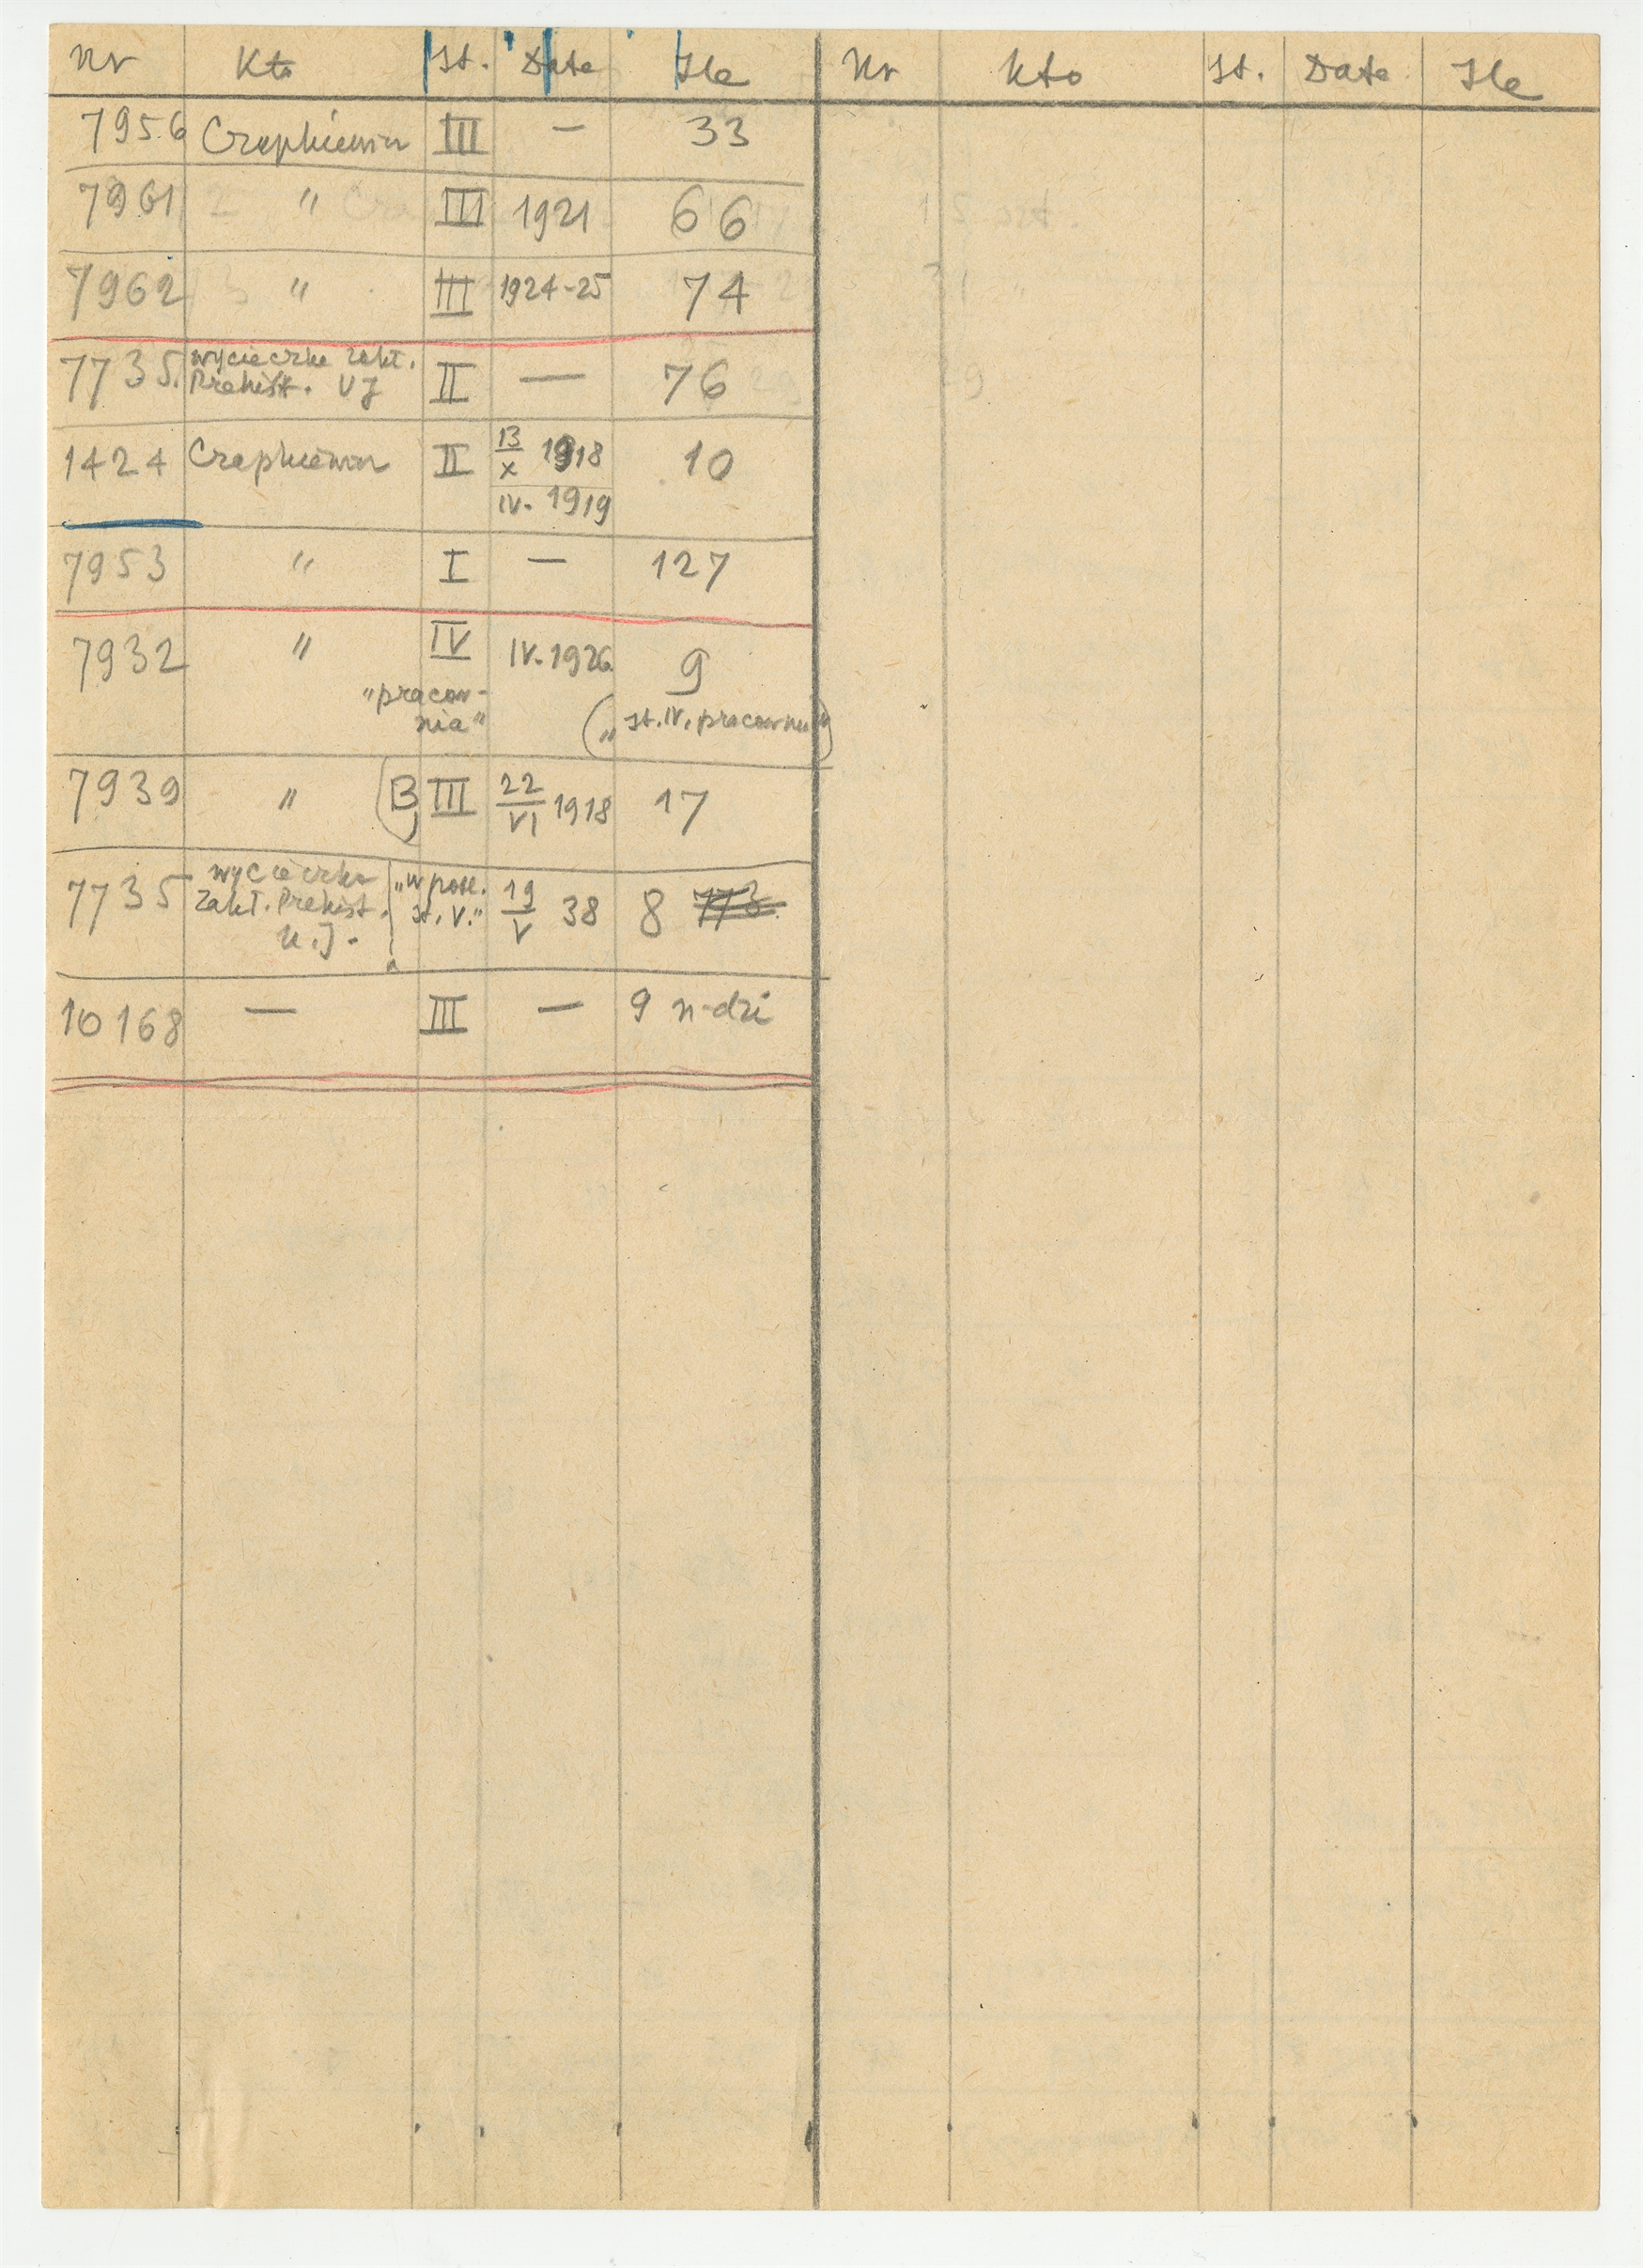 Nr Kto St. Data Ile Nr Kto St. Data Ile
7956 Czapkiewicz III — 33
7961 " III 1921 66
7962 " III 1924-25 74
7735. wycieczka Zakł.
Prehist. UJ II — 76
1424 Czapkiewicz II 13/X 1918 10
IV. 1919
7953 " I — 127
7932 " IV IV. 1926 9
"pracow-
nia" („St. IV, pracownia")
7939 " (B) III 22/VI 1918 17
7735 wycieczka
Zakł. Prehist.
U.J. „w pow.
st. V." 19/V 38 8 773
10168 — III — 9 n-dzi